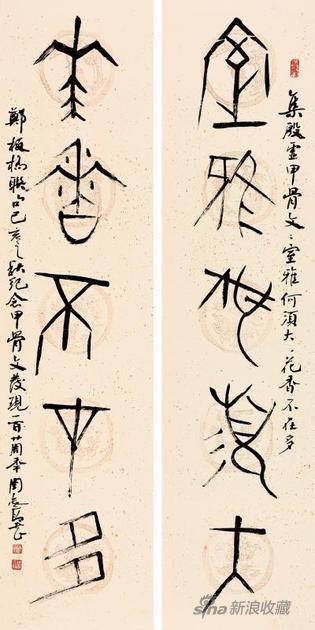 集殷虛甲骨文：室雅何須大、花香不在多
室雅何須大
花香不在多
鄭板橋聯句己亥之秋紀念甲骨文發現一百廿周年周志高
sina 新浪收藏